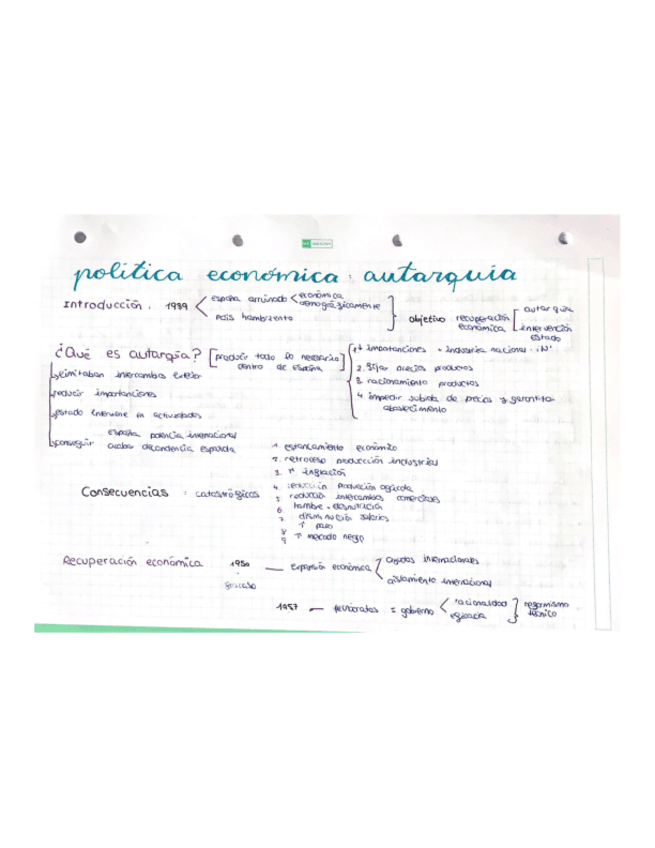 política económica: autarquía
Introducción. 1939 < españa arruinado < económica
demográficamente
país hambriento
objetivo recuperación económica [ autarquía
intervención estado
¿Qué es autarqía? [producir todo lo necesario dentro de España]
limitaban intercambios exterior
reducir importanciones
estado interviene en actividades
conseguir españa potencia internacional
acabar decandencia española
1 ↓ importanciones = industria nacional "IN"
2. fijar precios productos
3. racionamiento productos
4. impedir subida de precios y garantiza
abastecimiento
Consecuencias : catastróficos
1. estancamiento económico
2. retroceso producción industrial
3. ↑ inflación
4. reducción producción agrícola
5 reducción intercambios comerciales
6 hambre + desnutrición
7 disminución salarios
8 ↑ paro
9 ↑ mercado negro
Recuperación económica 1950 — expansión económica < ayudas internacionales
aislamiento internacional
fracaso
1957 — tecnócratas = gobierno < racionalidad
eficacia
] regormismo técnico